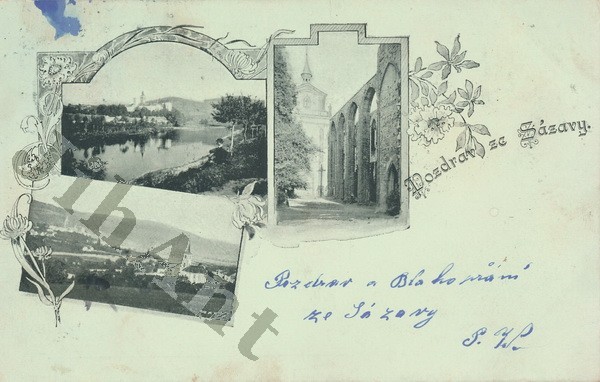 Pozdrav ze Sázavy.
Pozdrav a Blahopřání
ze Sázavy
AhAnt